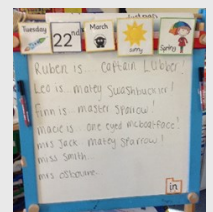 Tuesday 22nd March sunny Spring
Ruben is... captain Lubber!
Leo is... matey Swashbuckler!
finn is... master sparow!
macie is... one eyed mcboatface!
mrs Jack... matey Sparrow!
miss Smith...
mrs osbourne...
in